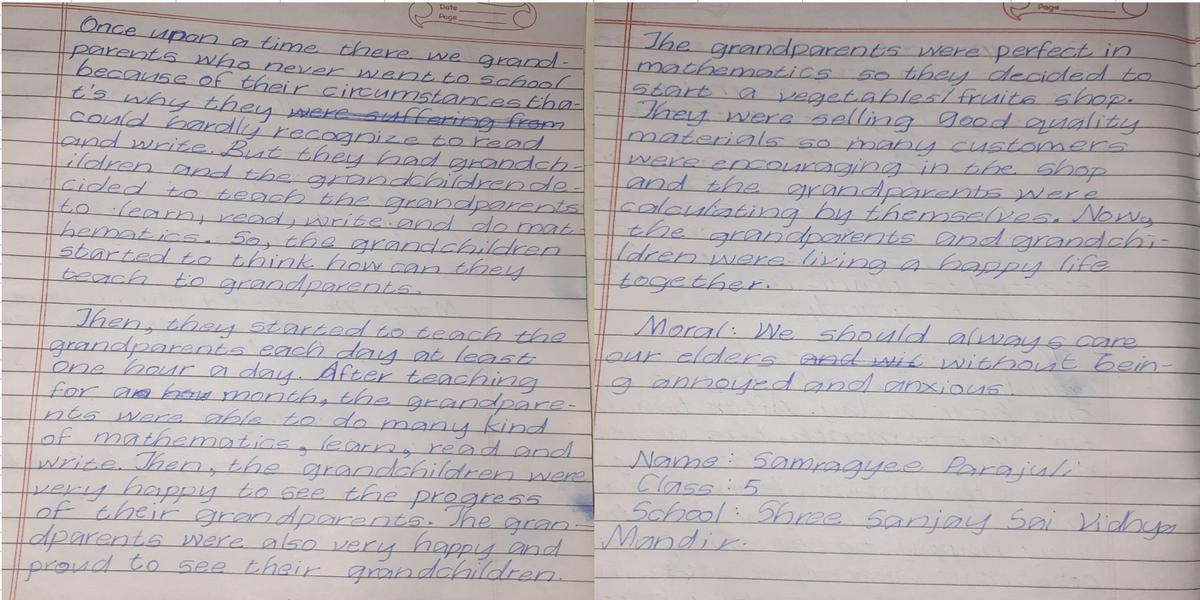 Date
Page
Once upon a time there we grand-
parents who never went to school
because of their circumstances tha-
t's why they were suffering from
could hardly recognize to read
and write. But they had grandch-
ildren and the grandchildren de-
cided to teach the grandparents
to learn, read, write and do mat-
hematics. So, the grandchildren
started to think how can they
teach to grandparents.
Then, they started to teach the
grandparents each day at least
one hour a day. After teaching
for a month, the grandpare-
nts were able to do many kind
of mathematics, learn, read and
write. Then, the grandchildren were
very happy to see the progress
of their grandparents. The gran-
dparents were also very happy and
proud to see their grandchildren.
Page
The grandparents were perfect in
mathematics so they decided to
start a vegetables/fruits shop.
They were selling good quality
materials so many customers
were encouraging in the shop
and the grandparents were
calculating by themselves. Now,
the grandparents and grandchi-
ldren were living a happy life
together.
Moral: We should always care
our elders and wit without bein-
g annoyed and anxious.
Name: Samragyee Parajuli
Class: 5
School: Shree Sanjay Sai Vidhya
Mandir.